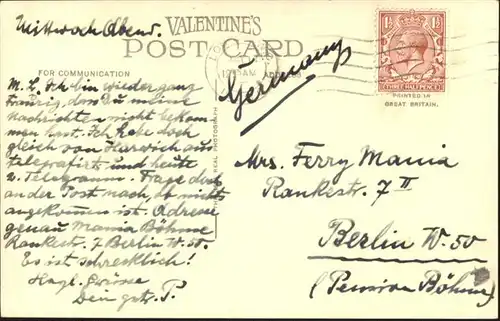 Mittwoch Abend.
VALENTINE'S
POST CARD
FOR COMMUNICATION
M. L. Ich bin wieder ganz
traurig, dass Du meine
Nachrichten nicht bekom
men hast. Ich habe doch
gleich von Harwich aus
telegrafirt und heute
2. Telegramm. Frage doch
an der Post nach, ob nicht
angekommen ist. Adresse
genau Mania Böhme
Rankestr. 7 Berlin W. 50.
Es ist schrecklich!
Hzgl. Grüsse
Dein P.
REAL PHOTOGRAPH
12 AM
Germany
THREE HALF PENCE
PRINTED IN
GREAT BRITAIN.
Mrs. Ferry Mania
Rankestr. 7 II
Berlin W. 50
(Pension Böhme)